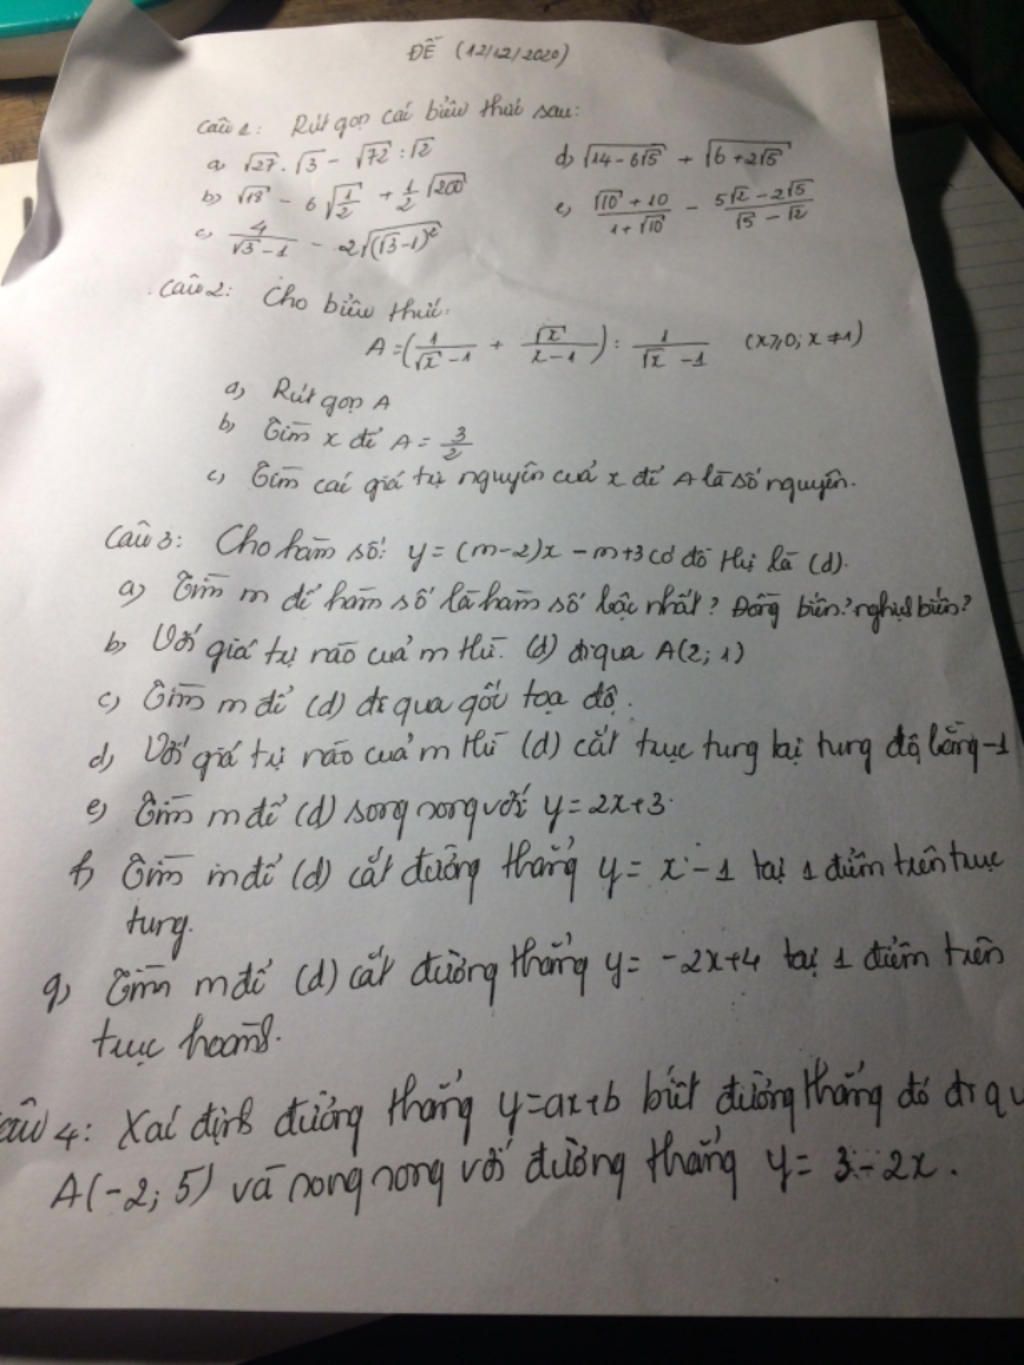 ĐỀ (12/12/2020)
Câu 1: Rút gọn các biểu thức sau:
a) √27 . √3 - √72 : √2
d) √(14 - 6√5) + √(6 + 2√5)
b) √18 - 6√(1/2) + 1/2 √200
e) (√10 + 10)/(1 + √10) - (5√2 - 2√5)/(√5 - √2)
c) 4/(√3 - 1) - 2√((√3 - 1)²)
Câu 2: Cho biểu thức:
A = (1/(√x - 1) + √x/(x - 1)) : 1/(√x - 1) (x ≥ 0; x ≠ 1)
a) Rút gọn A
b) Tìm x để A = 3/2
c) Tìm các giá trị nguyên của x để A là số nguyên.
Câu 3: Cho hàm số: y = (m-2)x - m+3 có đồ thị là (d).
a) Tìm m để hàm số là hàm số bậc nhất? Đồng biến? nghịch biến?
b) Với giá trị nào của m thì (d) đi qua A(2; 1)
c) Tìm m để (d) đi qua gốc toạ độ.
d) Với giá trị nào của m thì (d) cắt trục tung tại tung độ bằng -1
e) Tìm m để (d) song song với y = 2x+3
f) Tìm m để (d) cắt đường thẳng y = x - 1 tại 1 điểm trên trục
tung.
g) Tìm m để (d) cắt đường thẳng y = -2x+4 tại 1 điểm trên
trục hoành.
Câu 4: Xác định đường thẳng y=ax+b biết đường thẳng đó đi qu
A(-2; 5) và song song với đường thẳng y = 3 - 2x.